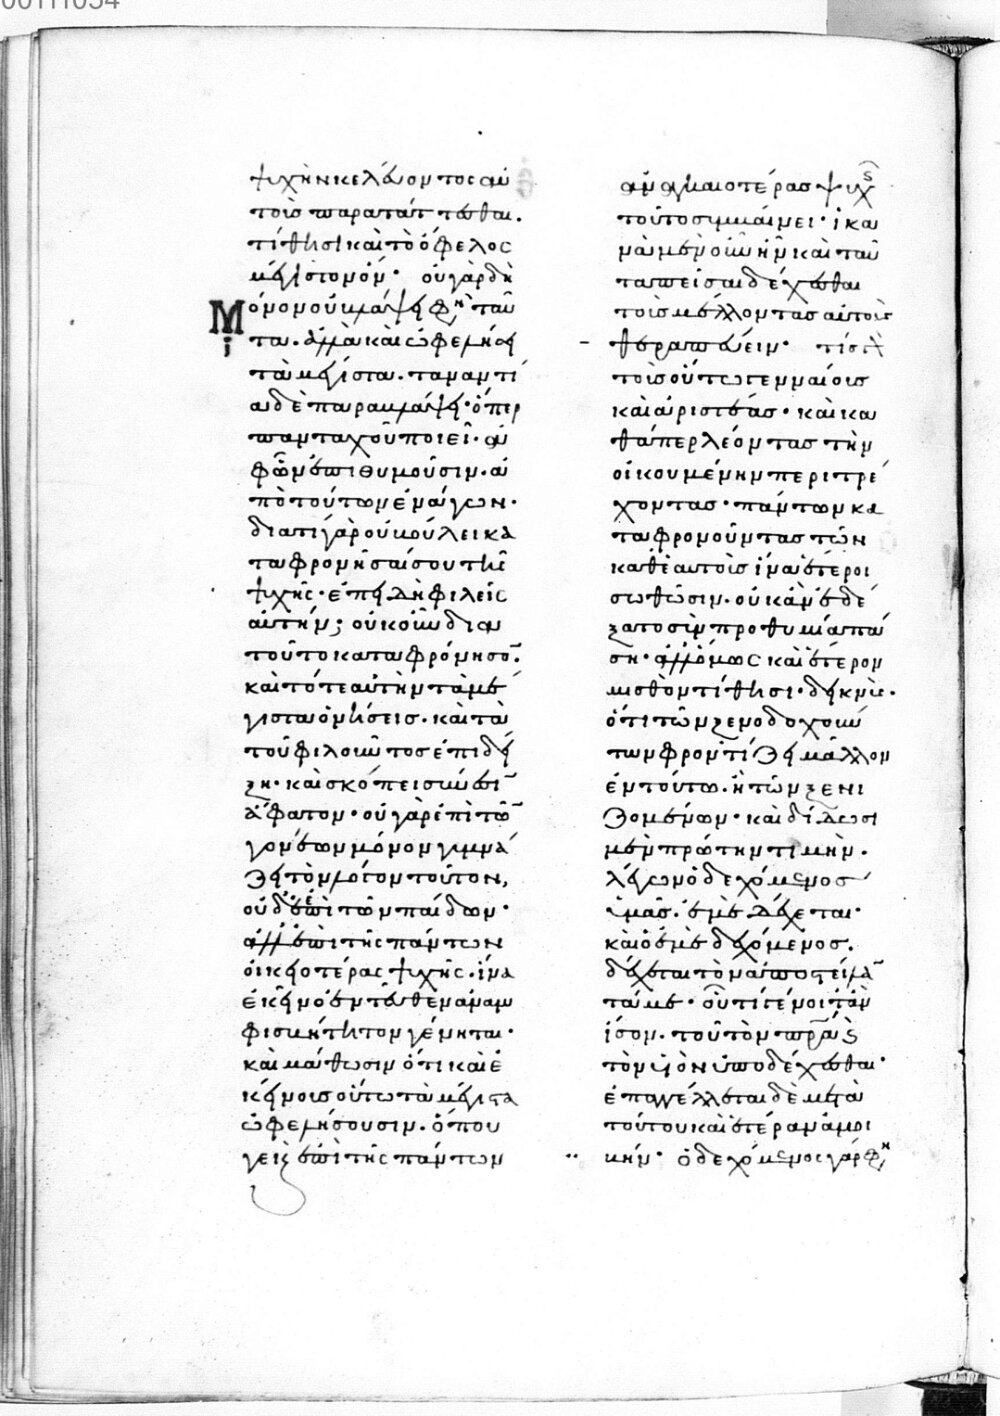 ψυχὴν κελεύοντος αὐ
τοῖς παρατάττεσθαι.
τίθησι καὶ τὸ ὄφελος
μέγιστον ὄν· οὐ γὰρ δὴ
μόνον οὐ βλάψει φη ταῦ
τα. ἀλλὰ καὶ ὠφελήσει
τὰ μέγιστα. τἀναντί
α δὲ παραβλάψει· ὅπερ
πανταχοῦ ποιεῖ· ἀ
φ' ὧν ἐπιθυμοῦσιν. ἀ
πὸ τούτων ἐνάγων·
διατί γὰρ οὐ βούλει κα
ταφρονῆσαί σου τῆς
ψυχῆς· ἐπειδὴ φιλεῖς
αὐτήν; οὐκοῦν δια
τοῦτο καταφρόνησον·
καὶ τότε αὐτὴν τὰ μέ
γιστα ὀνήσεις. καὶ τὰ
τοῦ φιλοῦντος ἐπιδεί
ξῃ· καὶ σκόπει σύνεσιν
ἄφατον· οὐ γὰρ ἐπὶ τῶν
γονέων μόνον γυμνά
ζει τὸν λόγον τοῦτον,
οὐδὲ ἐπὶ τῶν παίδων·
ἀλλ' ἐπὶ τῆς πάντων
οἰκειοτέρας ψυχῆς. ἵνα
ἐκεῖνο ἐντεῦθεν ἀναμ
φισβήτητον γένηται·
καὶ μάθωσιν ὅτι καὶ ἐ
κείνοις οὕτω τὰ μέγιστα
ὠφελήσουσιν. ὅπου
γε ἐπὶ τῆς πάντων
ἀναγκαιοτέρας ψυχῆς
τοῦτο συμβαίνει· ἱκα
νὰ μὲν οὖν ἦν καὶ ταῦ
τα πεῖσαι δέχεσθαι
τοῖς μέλλοντας αὐτοὺς
θεραπεύειν· τίς
τοῖς οὕτω γενναίοις
καὶ ἀριστέας· καὶ κα
θάπερ λέοντας τὴν
οἰκουμένην περιτρέ
χοντας· πάντων κα
ταφρονοῦντας τῶν
καθ' ἑαυτοὺς ἵνα ἕτεροι
σωθῶσιν. οὐκ ἂν ἐδέ
ξατο σὺν προθυμία πά
σῃ· ἀλλ' ὅμως καὶ ἕτερον
μισθὸν τίθησι· δεικνὺς.
ὅτι τῶν ξενοδοχούν
των φροντίζει μᾶλλον
ἐν τούτω. ἢ τῶν ξενι
ζομένων· καὶ δίδωσι
μὲν πρώτην τιμὴν.
λέγων ὁ δεχόμενος
ὑμᾶς. ἐμὲ δέχεται·
καὶ ὁ ἐμὲ δεχόμενος.
δέχεται τὸν ἀποστείλαν
τά με· οὗ τί γένοιτ' ἂν
ἴσον. τοῦ τὸν πρα
τὸν υἱὸν ὑποδέχεσθαι·
ἐπαγγέλλεται δὲ μετὰ
τούτου καὶ ἑτέραν ἀμοι
βήν· ὁ δεχόμενος γάρ φη